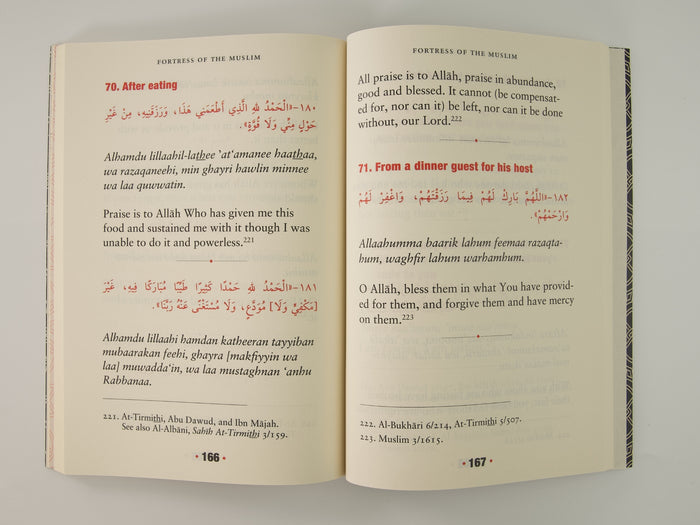 FORTRESS OF THE MUSLIM
70. After eating
١٨٠-«الْحَمْدُ لِلَّهِ الَّذِي أَطْعَمَنِي هَذَا، وَرَزَقَنِيهِ، مِنْ غَيْرِ
حَوْلٍ مِنِّي وَلَا قُوَّةٍ».
Alhamdu lillaahil-lathee 'at'amanee haathaa,
wa razaqaneehi, min ghayri hawlin minnee
wa laa quwwatin.
Praise is to Allāh Who has given me this
food and sustained me with it though I was
unable to do it and powerless.221
١٨١-«الْحَمْدُ لِلَّهِ حَمْدًا كَثِيرًا طَيِّبًا مُبَارَكًا فِيهِ، غَيْرَ
[مَكْفِيٍّ وَلَا] مُوَدَّعٍ، وَلَا مُسْتَغْنًى عَنْهُ رَبَّنَا».
Alhamdu lillaahi hamdan katheeran tayyihan
mubaarakan feehi, ghayra [makfiyyin wa
laa] muwadda'in, wa laa mustaghnan 'anhu
Rabbanaa.
221. At-Tirmithi, Abu Dawud, and Ibn Mājah.
See also Al-Albāni, Sahīh At-Tirmithi 3/159.
166
FORTRESS OF THE MUSLIM
All praise is to Allāh, praise in abundance,
good and blessed. It cannot (be compensat-
ed for, nor can it) be left, nor can it be done
without, our Lord.222
71. From a dinner guest for his host
١٨٢-«اللَّهُمَّ بَارِكْ لَهُمْ فِيمَا رَزَقْتَهُمْ، وَاغْفِرْ لَهُمْ
وَارْحَمْهُمْ».
Allaahumma haarik lahum feemaa razaqta-
hum, waghfir lahum warhamhum.
O Allāh, bless them in what You have provid-
ed for them, and forgive them and have mercy
on them.223
222. Al-Bukhāri 6/214, At-Tirmithi 5/507.
223. Muslim 3/1615.
167